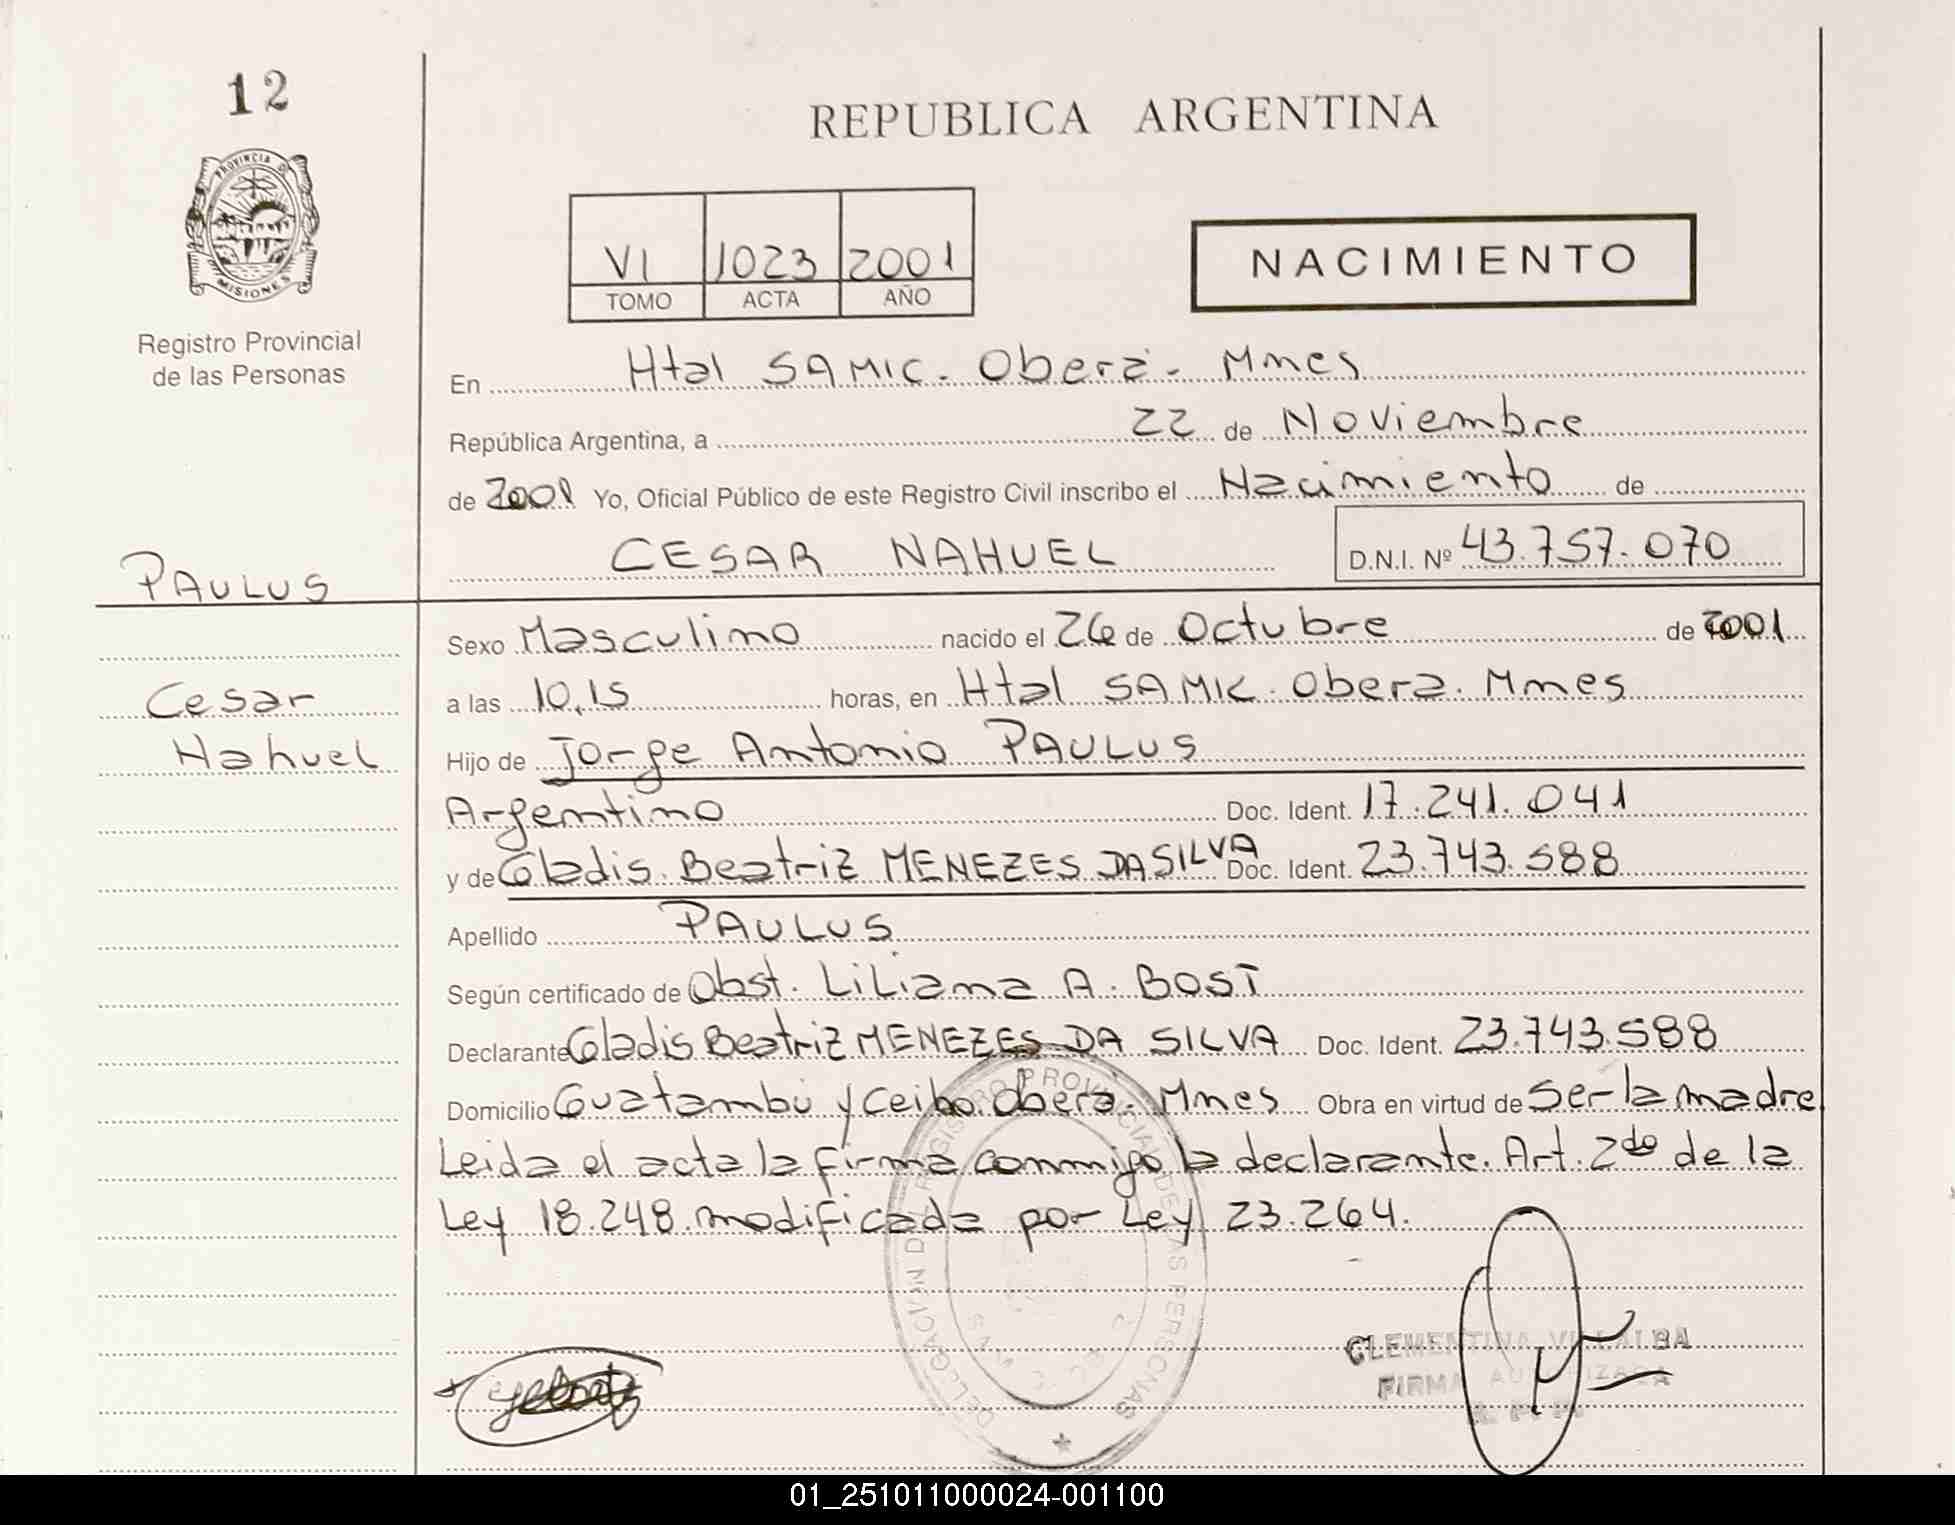 12
REPUBLICA ARGENTINA
PROVINCIA D
MISIONES
VI 1023 2001
TOMO ACTA AÑO
NACIMIENTO
Registro Provincial
de las Personas
En Htal SAMIC. Oberá. Mnes
República Argentina, a 22 de Noviembre
de 2001 Yo, Oficial Público de este Registro Civil inscribo el Nacimiento de
CESAR NAHUEL D.N.I. Nº 43.757.070
PAULUS
Cesar
Nahuel
Sexo Masculino nacido el 26 de Octubre de 2001
a las 10,15 horas, en Htal SAMIC. Obera. Mnes
Hijo de Jorge Antonio PAULUS
Argentino Doc. Ident. 17.241.041
y de Gladis Beatriz MENEZES DA SILVA Doc. Ident. 23.743.588
Apellido PAULUS
Según certificado de Obst. Liliana A. BOST
Declarante Gladis Beatriz MENEZES DA SILVA Doc. Ident. 23.743.588
Domicilio Guatambú y Ceibo. Oberá. Mnes Obra en virtud de Ser la madre
Leida el acta la firma conmigo la declarante. Art. 2do de la
Ley 18.248 modificada por Ley 23.264.
DELEGACION DEL REGISTRO PROVINCIAL DE LAS PERSONAS
CLEMENTINA VILLALBA
FIRMA AUTORIZADA
01_251011000024-001100